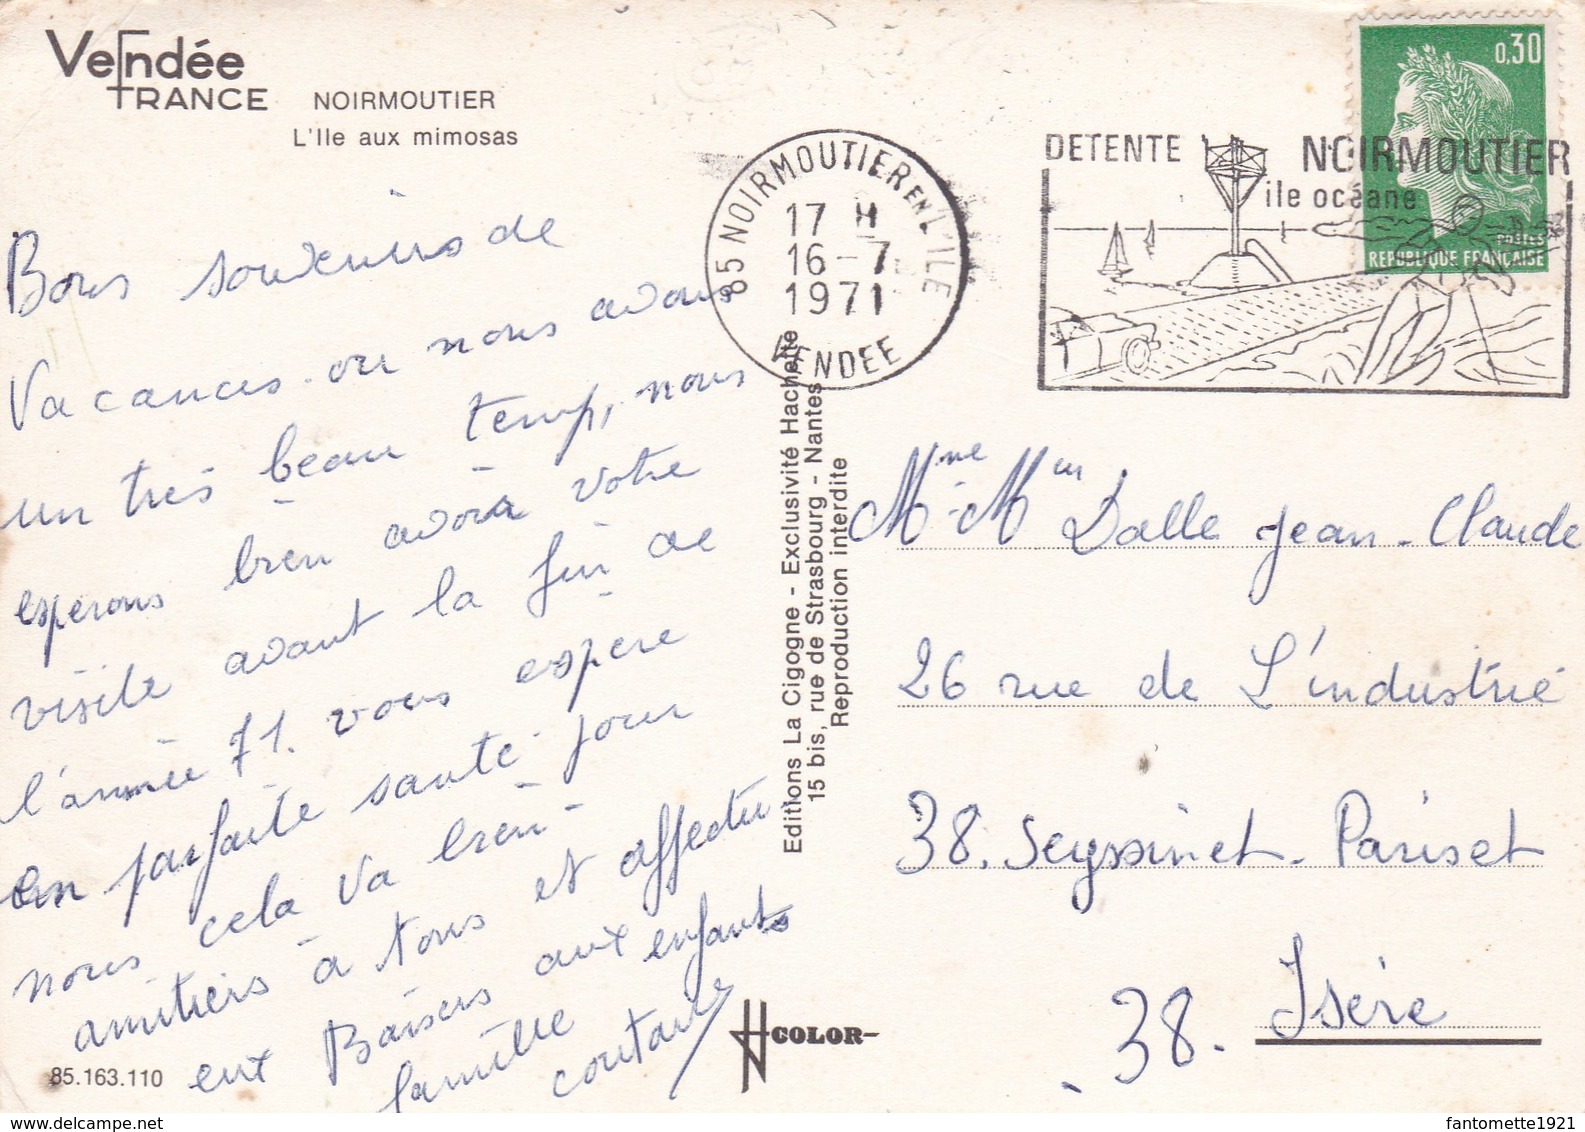 Vendée
FRANCE
NOIRMOUTIER
L'Ile aux mimosas
Bons souvenirs de
Vacances ou nous avons
un très beau temp, nous
esperons bien avoir votre
visite avant la fin de
l'année 71. vous espère
en parfaite santé pour
nous cela va bien
amitiers à tous et affectu
eux Baisers aux enfants
famille
85.163.110
85 NOIRMOUTIER EN L'ILE
17 H
16-7
1971
VENDEE
DETENTE NOIRMOUTIER
île océane
0,30
POSTES
REPUBLIQUE FRANÇAISE
Editions La Cigogne - Exclusivité Hachette
15 bis, rue de Strasbourg - Nantes
Reproduction interdite
COLOR
Mme - Mr Dalle Jean-Claude
26 rue de L'industrie
38. Seyssinet-Pariset
38. Isère
fantomette1921